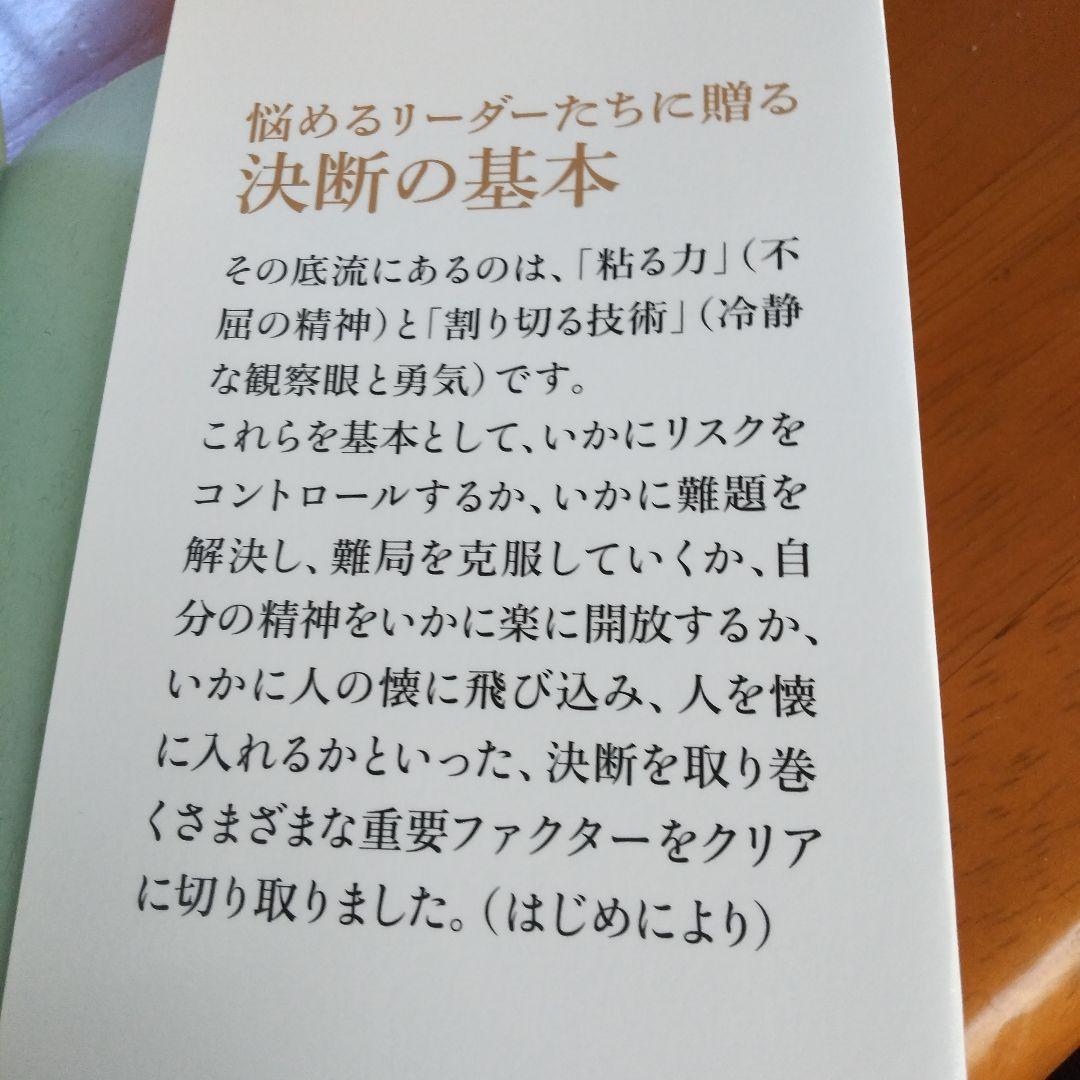 悩めるリーダーたちに贈る
決断の基本
その底流にあるのは、「粘る力」（不
屈の精神）と「割り切る技術」（冷静
な観察眼と勇気）です。
これらを基本として、いかにリスクを
コントロールするか、いかに難題を
解決し、難局を克服していくか、自
分の精神をいかに楽に開放するか、
いかに人の懐に飛び込み、人を懐
に入れるかといった、決断を取り巻
くさまざまな重要ファクターをクリア
に切り取りました。（はじめにより）